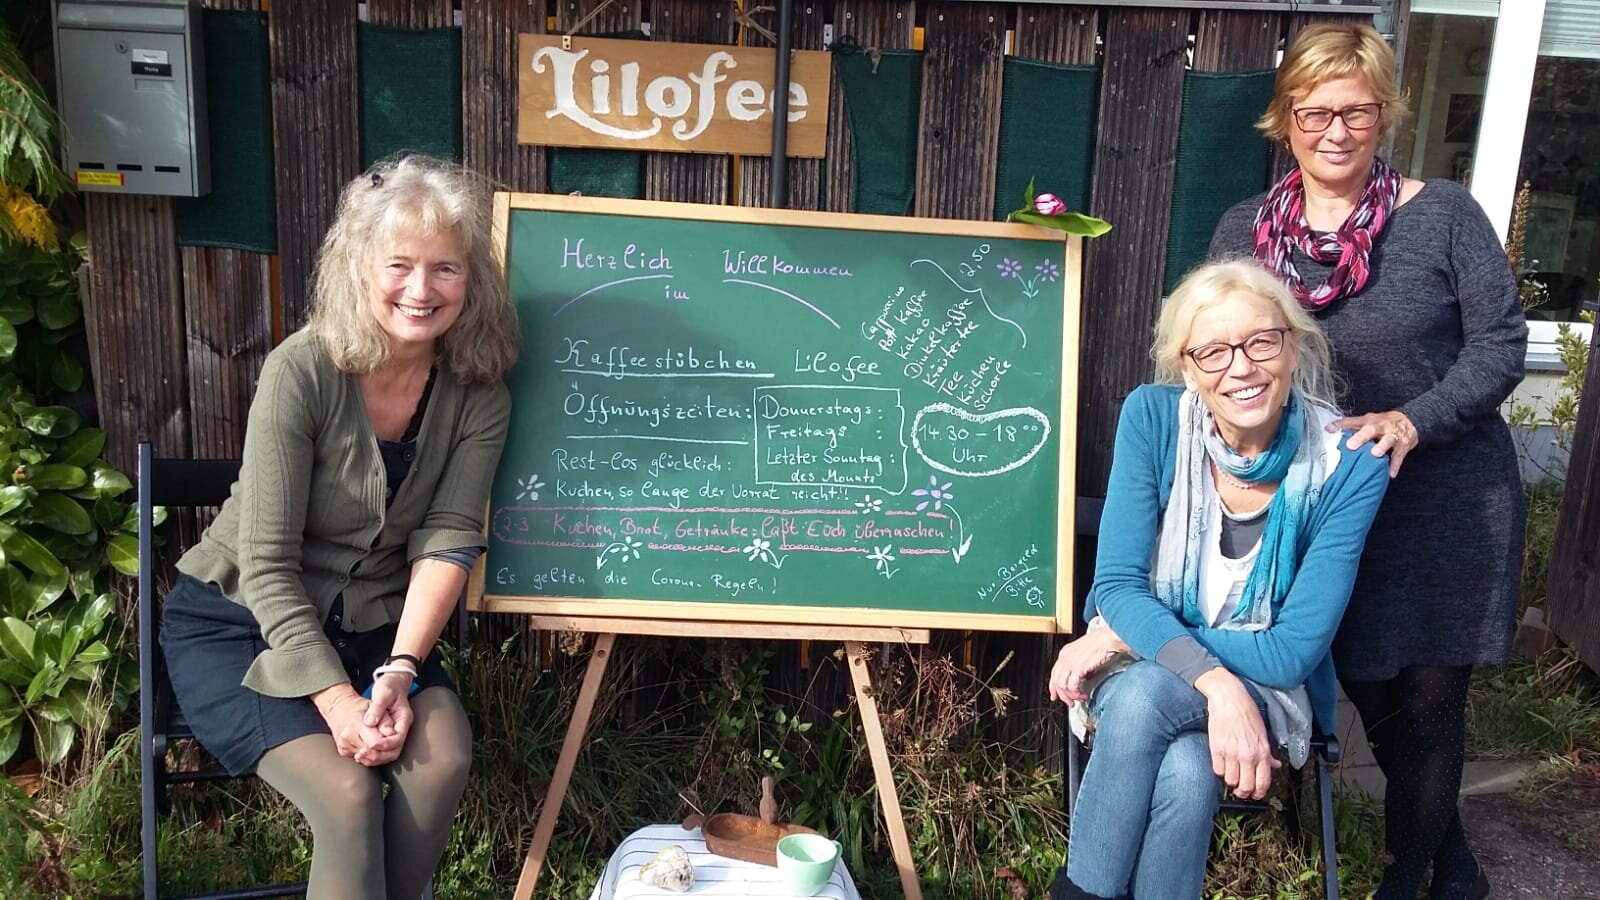 Lilofee
Herzlich Willkommen
im
Kaffeestübchen Lilofee
Öffnungszeiten:
Donnerstags:
Freitags :
Letzter Sonntag :
des Monats
14.30 - 18 00
Uhr
2,50
Cappuccino
Pott Kaffee
Kakao
Dinkelkaffee
Kräutertee
Tee
Kuchen
Schorle
Rest-los glücklich:
Kuchen, so lange der Vorrat reicht!!
2.3 Kuchen, Brot, Getränke: laßt Euch überraschen!
Es gelten die Corona-Regeln!
Nur Bares
Bitte